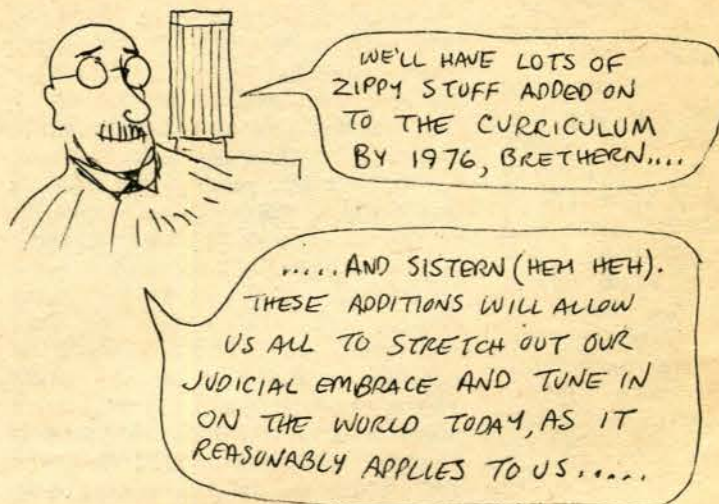 WE'LL HAVE LOTS OF
ZIPPY STUFF ADDED ON
TO THE CURRICULUM
BY 1976, BRETHERN....
.....AND SISTERN (HEH HEH).
THESE ADDITIONS WILL ALLOW
US ALL TO STRETCH OUT OUR
JUDICIAL EMBRACE AND TUNE IN
ON THE WORLD TODAY, AS IT
REASONABLY APPLIES TO US.....